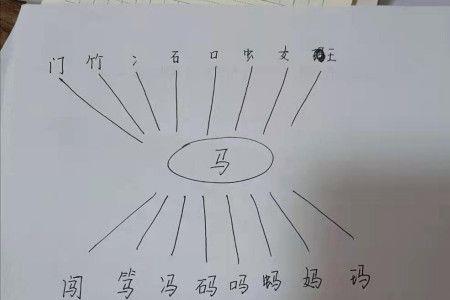 门 竹 冫 石 口 虫 女 王
马
闯 笃 冯 码 吗 蚂 妈 玛